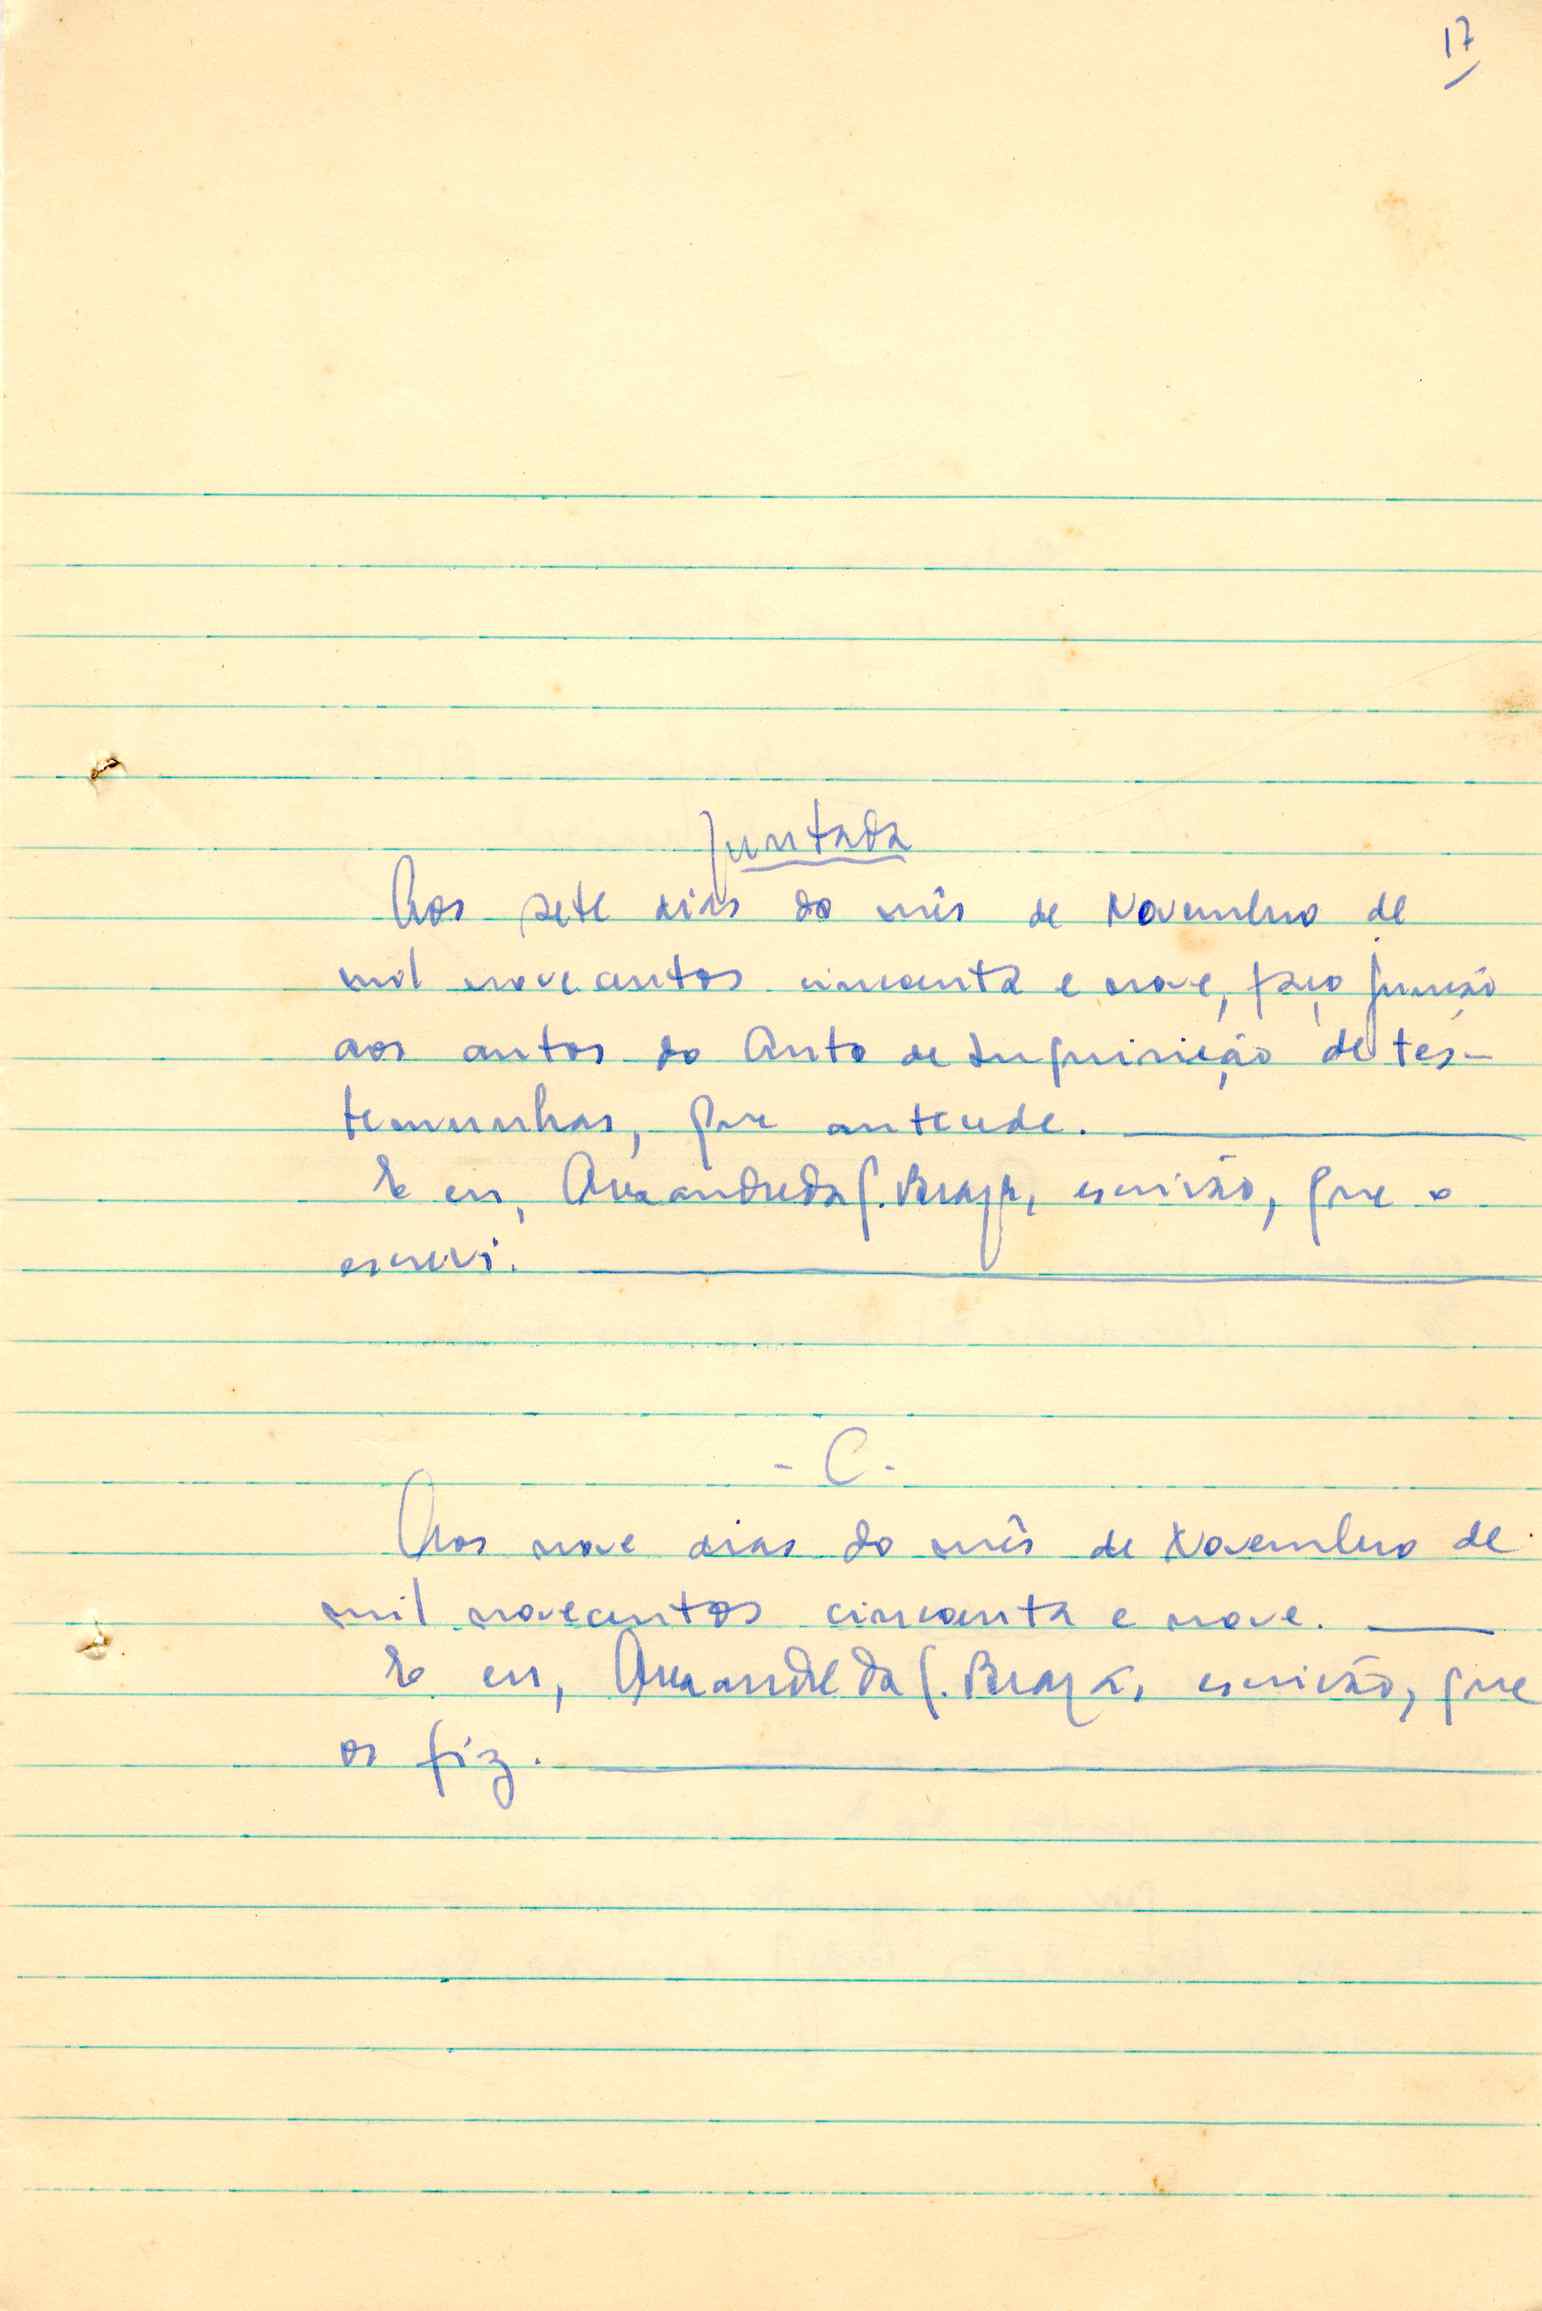 17
Juntada
Aos sete dias do mês de Novembro de
mil novecentos cincoenta e nove, faço junção
aos autos do Auto de Inquirição de tes-
temunhas, que antecede.
E eu, da S. Braga, escrivão, que o
escrevi.
- C -
Aos nove dias do mês de Novembro de
mil novecentos cincoenta e nove.
E eu, da S. Braga, escrivão, que
os fiz.